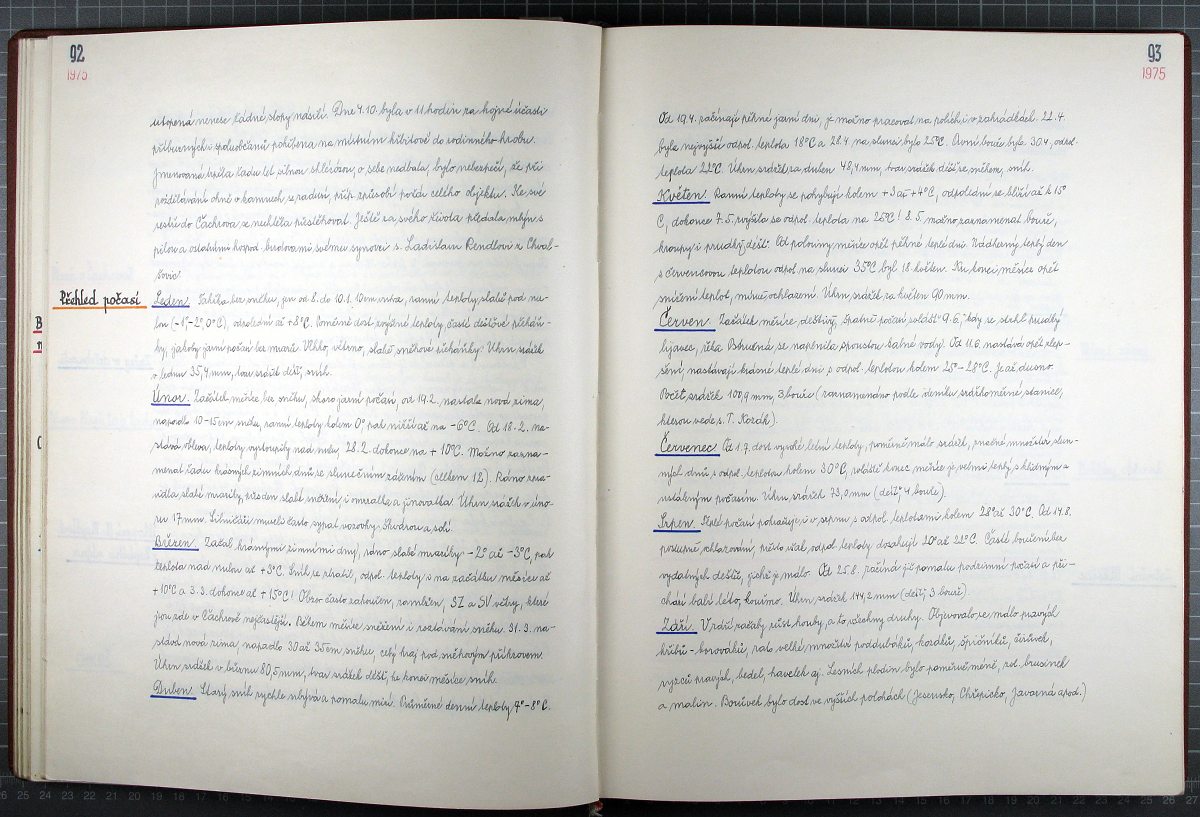 92
1975
utopená nenese žádné stopy násilí. Dne 4.10. byla v 11 hodin za hojné účasti
příbuzných a spoluobčanů pohřbena na místním hřbitově do rodinného hrobu.
Jmenovaná trpěla řadu let silnou sklerózou, o sebe nedbala, bylo nebezpečí, že při
rozdělávání ohně v kamnech se zadusí, příp. způsobí požár celého objektu. Ke své
sestře do Čachrova se nechtěla přestěhovat. Ještě za svého života předala mlýn s
pilou a ostatními hospod. budovami svému synovci s. Ladislavu Rendlovi z Chval-
šovic
Přehled počasí
Leden. Takřka bez sněhu, jen od 8. do 10.1. 10 cm vrstva, ranní teploty slabě pod nu-
lou (-1°, -2°, 0°C), odpolední až +8°C. Poměrně dost zvýšené teploty, časté dešťové přeháň-
ky, jakoby jarní počasí bez mrazů. Vlhko, větrno, slabé sněhové přeháňky. Úhrn srážek
v lednu 35,4 mm, tvar srážek déšť, sníh.
Únor. Začátek měsíce bez sněhu, skoro jarní počasí, od 19.2. nastala nová zima,
napadlo 10-15 cm sněhu, ranní teploty kolem 0° pak nižší až na -6°C. Od 18.2. na-
stává obleva, teploty vystoupily nad nulu, 28.2. dokonce na +10°C. Možno zazna-
menat řadu krásných zimních dnů se slunečním zářením (celkem 12). Ráno zpra-
vidla slabé mrazíky, přes den slabé sněžení, i omrzalka a jinovatka. Úhrn srážek v úno-
ru 17 mm. Silničáři museli často sypat vozovky škvárou a solí.
Březen. Začal krásnými zimními dny, ráno slabé mrazíky -2° až -3°C, pak
teplota nad nulou až +3°C. Sníh se ztratil, odpol. teploty s na začátku měsíce až
+10°C a 3.3. dokonce až +15°C! Obzor často zakouřen, zamlžen, SZ a SV větry, které
jsou zde v Čachrově nejčastější. Během měsíce sněžení i roztávání sněhu. 31.3. na-
stává nová zima, napadlo 30 až 35 cm sněhu, celý kraj pod sněhovým příkrovem.
Úhrn srážek v březnu 80,5 mm, tvar srážek déšť, ke konci měsíce sníh.
Duben. Starý sníh rychle ubývá a pomalu mizí. Průměrné denní teploty 4°-8°C.
93
1975
Od 19.4. začínají pěkné jarní dni, je možno pracovat na polích i v zahrádkách. 22.4.
byla nejvyšší odpol. teplota 18°C a 28.4. na slunci bylo 25°C. První bouře byla 30.4., odpol.
teplota 22°C. Úhrn srážek za duben 48,4 mm, tvar srážek déšť se sněhem, sníh.
Květen. Ranní teploty se pohybují kolem +3 až +4°C, odpolední se blíží až k 15°
C, dokonce 7.5. zvýšila se odpol. teplota na 25°C! 8.5. možno zaznamenat bouře,
kroupy i prudký déšť. Od poloviny měsíce opět pěkné teplé dni. Nádherný teplý den
s červencovou teplotou odpol. na slunci 35°C byl 18. květen. Ku konci měsíce opět
snížení teplot, mírné ochlazení. Úhrn srážek za květen 90 mm.
Červen. Začátek měsíce deštivý, špatné počasí zvlášť 9.6., kdy se strhl prudký
lijavec, řeka Ostružná se naplnila spoustou kalné vody. Od 11.6. nastává opět zlep-
šení, nastávají krásné teplé dni s odpol. teplotou kolem 25°-28°C. Je až dusno.
Počet srážek 100,9 mm, 3 bouře (zaznamenáno podle deníku srážkoměrné stanice,
kterou vede s. T. Kozák).
Červenec. Od 1.7. dost vysoké letní teploty, poměrně málo srážek, značné množství slun-
ných dnů s odpol. teplotou kolem 30°C, zvláště konec měsíce je velmi teplý s klidným a
ustáleným počasím. Úhrn srážek 73,0 mm (déšť, 4 bouře).
Srpen. Teplé počasí pokračuje i v srpnu s odpol. teplotami kolem 28° až 30°C. Od 14.8.
postupné ochlazování, přesto však odpol. teploty dosahují 20° až 22°C. Časté bouření bez
vydatných dešťů, jichž je málo. Od 25.8. začíná již pomalu podzimní počasí a při-
chází babí léto, kouřmo. Úhrn srážek 144,2 mm (déšť, 3 bouře).
Září. V září začaly růst houby, a to všechny druhy. Objevovalo se málo pravých
hřibů - borováků, zato velké množství poddubáků, kozáků, špičníků, čirůvek,
ryzců pravých, bedel, havelek aj. Lesních plodin bylo poměrně méně, zvl. brusinek
a malin. Borůvek bylo dost ve vyšších polohách (Jesensko, Chřepicko, Javorná apod.)